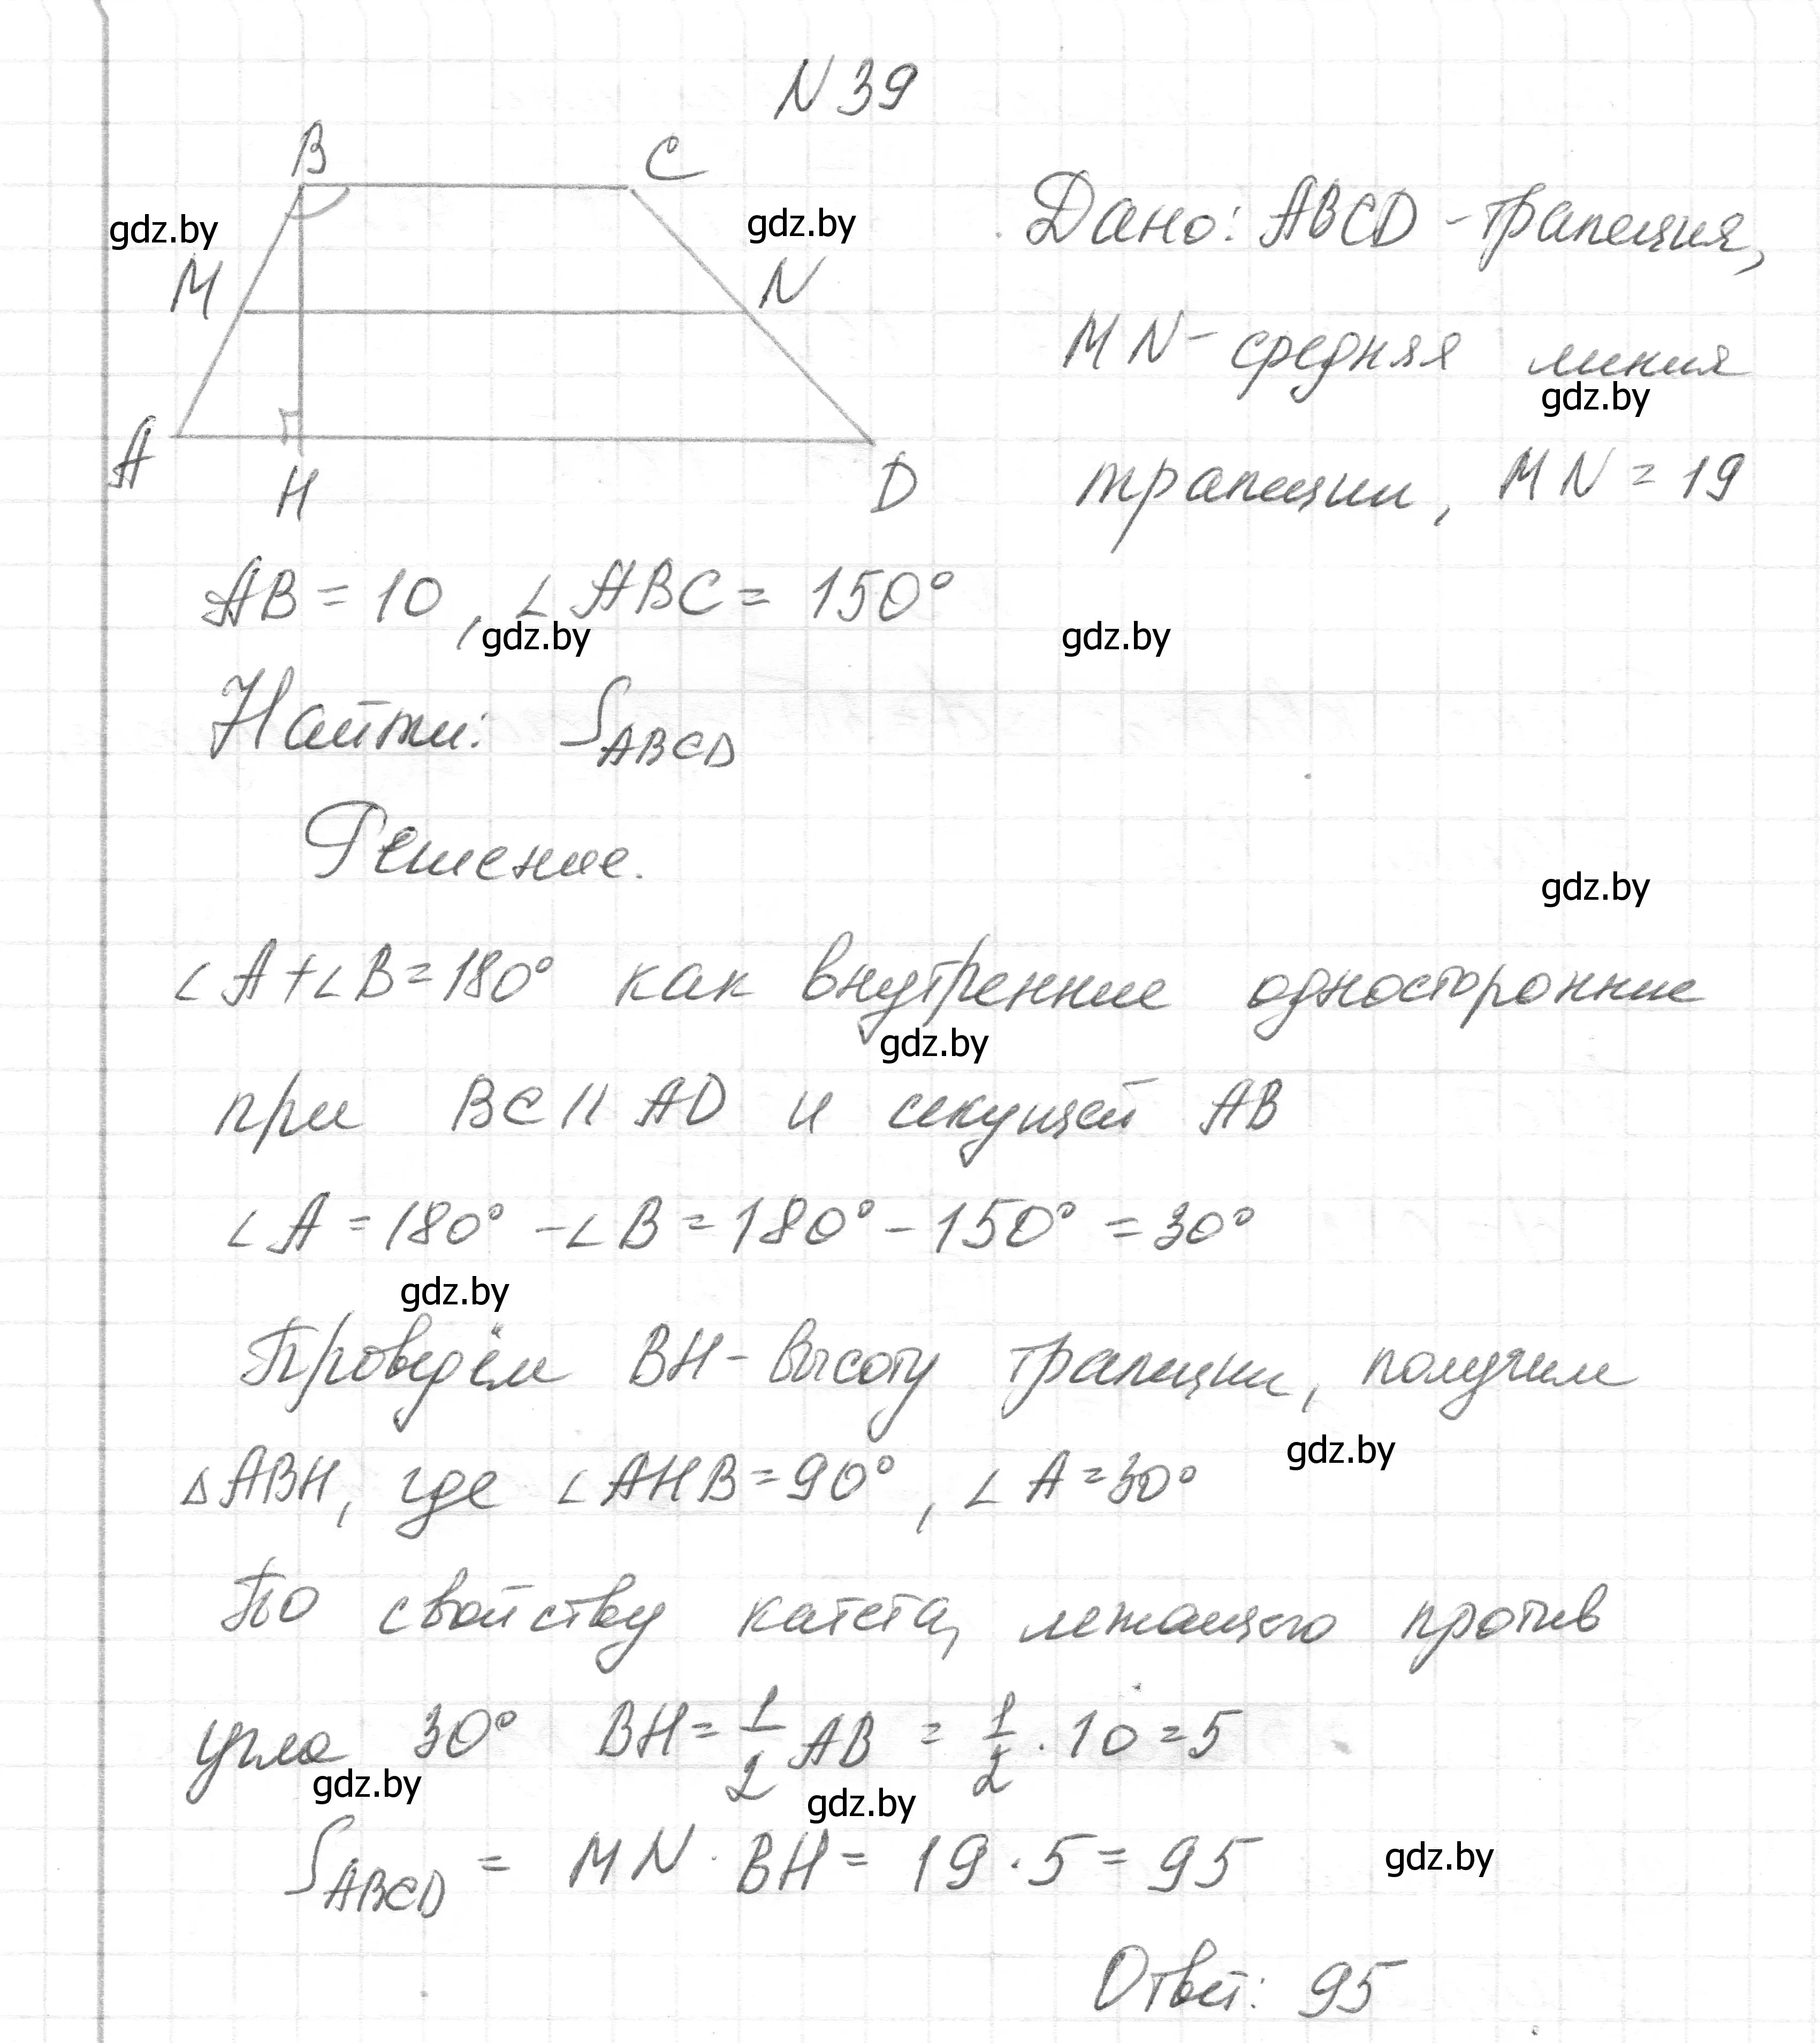 N 39
B
C
gdz.by
gdz.by
Дано: ABCD - трапеция,
M
N
MN - средняя линия
gdz.by
A
H
D
трапеции, MN = 19
AB = 10, ∠ABC = 150°
gdz.by
gdz.by
Найти: S_ABCD
Решение.
gdz.by
∠A + ∠B = 180° как внутренние односторонние
gdz.by
при BC || AD и секущей AB
∠A = 180° - ∠B = 180° - 150° = 30°
gdz.by
Проведём BH - высоту трапеции, получим
gdz.by
△ABH, где ∠AHB = 90°, ∠A = 30°
По свойству катета, лежащего против
угла 30° BH = 1/2 AB = 1/2 · 10 = 5
gdz.by
gdz.by
S_ABCD = MN · BH = 19 · 5 = 95
gdz.by
Ответ: 95